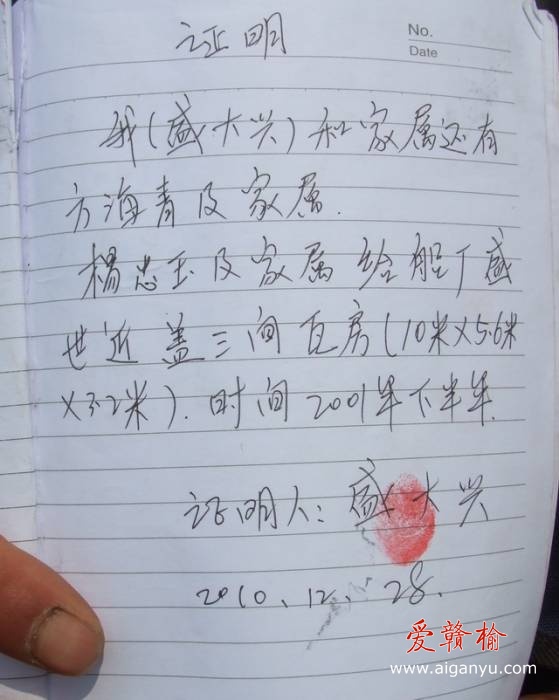 No.
Date
证明
我(盛大兴)和家属还有
方海青及家属.
杨忠玉及家属给船厂盛
世近盖三间瓦房(10米X5.6米
X3.2米).时间2001年下半年.
证明人:盛大兴
2010.12.28.
爱赣榆
www.aiganyu.com